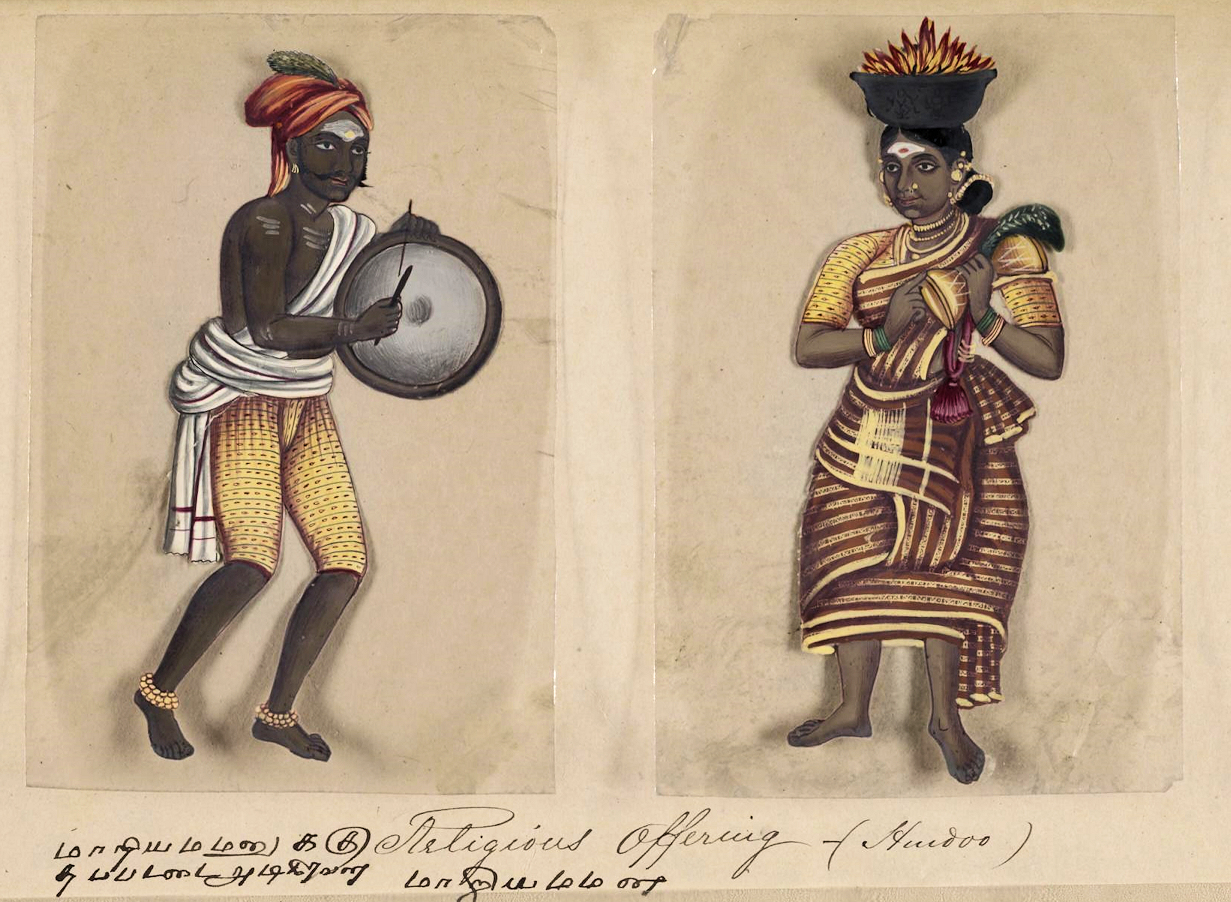 மாரியம்மனு க கு Religious Offering - (Hindoo)
தப்படைஅடிகிறவன் மாரியம்மனை